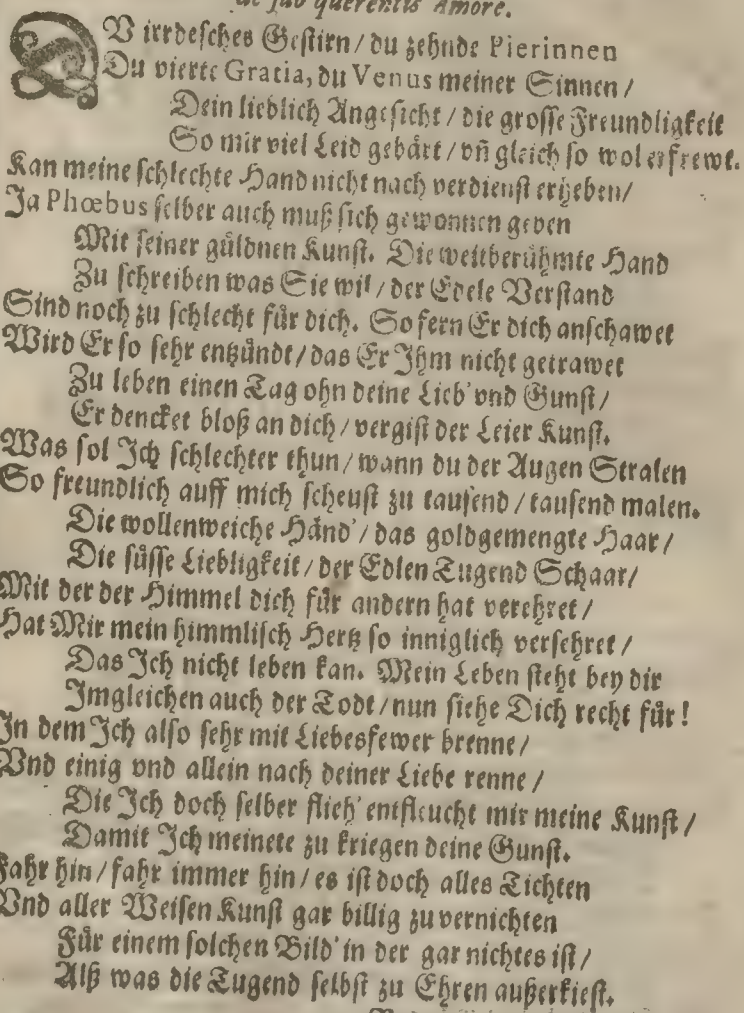 de suo querentis Amore.
DV irrdesches Gestirn / du zehnde Pierinnen
Du vierte Gratia, du Venus meiner Sinnen /
Dein lieblich Angesicht / die grosse Freundligkeit
So mir viel Leid gebärt / vñ gleich so wol erfrewt.
Kan meine schlechte Hand nicht nach verdienst erheben /
Ja Phœbus selber auch muß sich gewonnen geben
Mit seiner güldnen Kunst. Die weltberühmte Hand
Zu schreiben was Sie wil / der Edele Verstand
Sind noch zu schlecht für dich. So fern Er dich anschawet
Wird Er so sehr entzündt / das Er Ihm nicht getrawet
Zu leben einen Tag ohn deine Lieb' vnd Gunst /
Er dencket bloß an dich / vergist der Leier Kunst.
Was sol Ich schlechter thun / wann du der Augen Stralen
So freundlich auff mich scheust zu tausend / tausend malen.
Die wollenweiche Händ' / das goldgemengte Haar /
Die süsse Liebligkeit / der Edlen Tugend Schaar /
Mit der der Himmel dich für andern hat verehret /
Hat Mir mein himmlisch Hertz so inniglich versehret /
Das Ich nicht leben kan. Mein Leben steht bey dir
Imgleichen auch der Todt / nun siehe Dich recht für!
In dem Ich also sehr mit Liebesfewer brenne /
Vnd einig vnd allein nach deiner Liebe renne /
Die Ich doch selber flieh' entfleucht mir meine Kunst /
Damit Ich meinete zu kriegen deine Gunst.
Fahr hin / fahr immer hin / es ist doch alles Tichten
Vnd aller Weisen Kunst gar billig zu vernichten
Für einem solchen Bild' in der gar nichtes ist /
Alß was die Tugend selbst zu Ehren außerkiest.